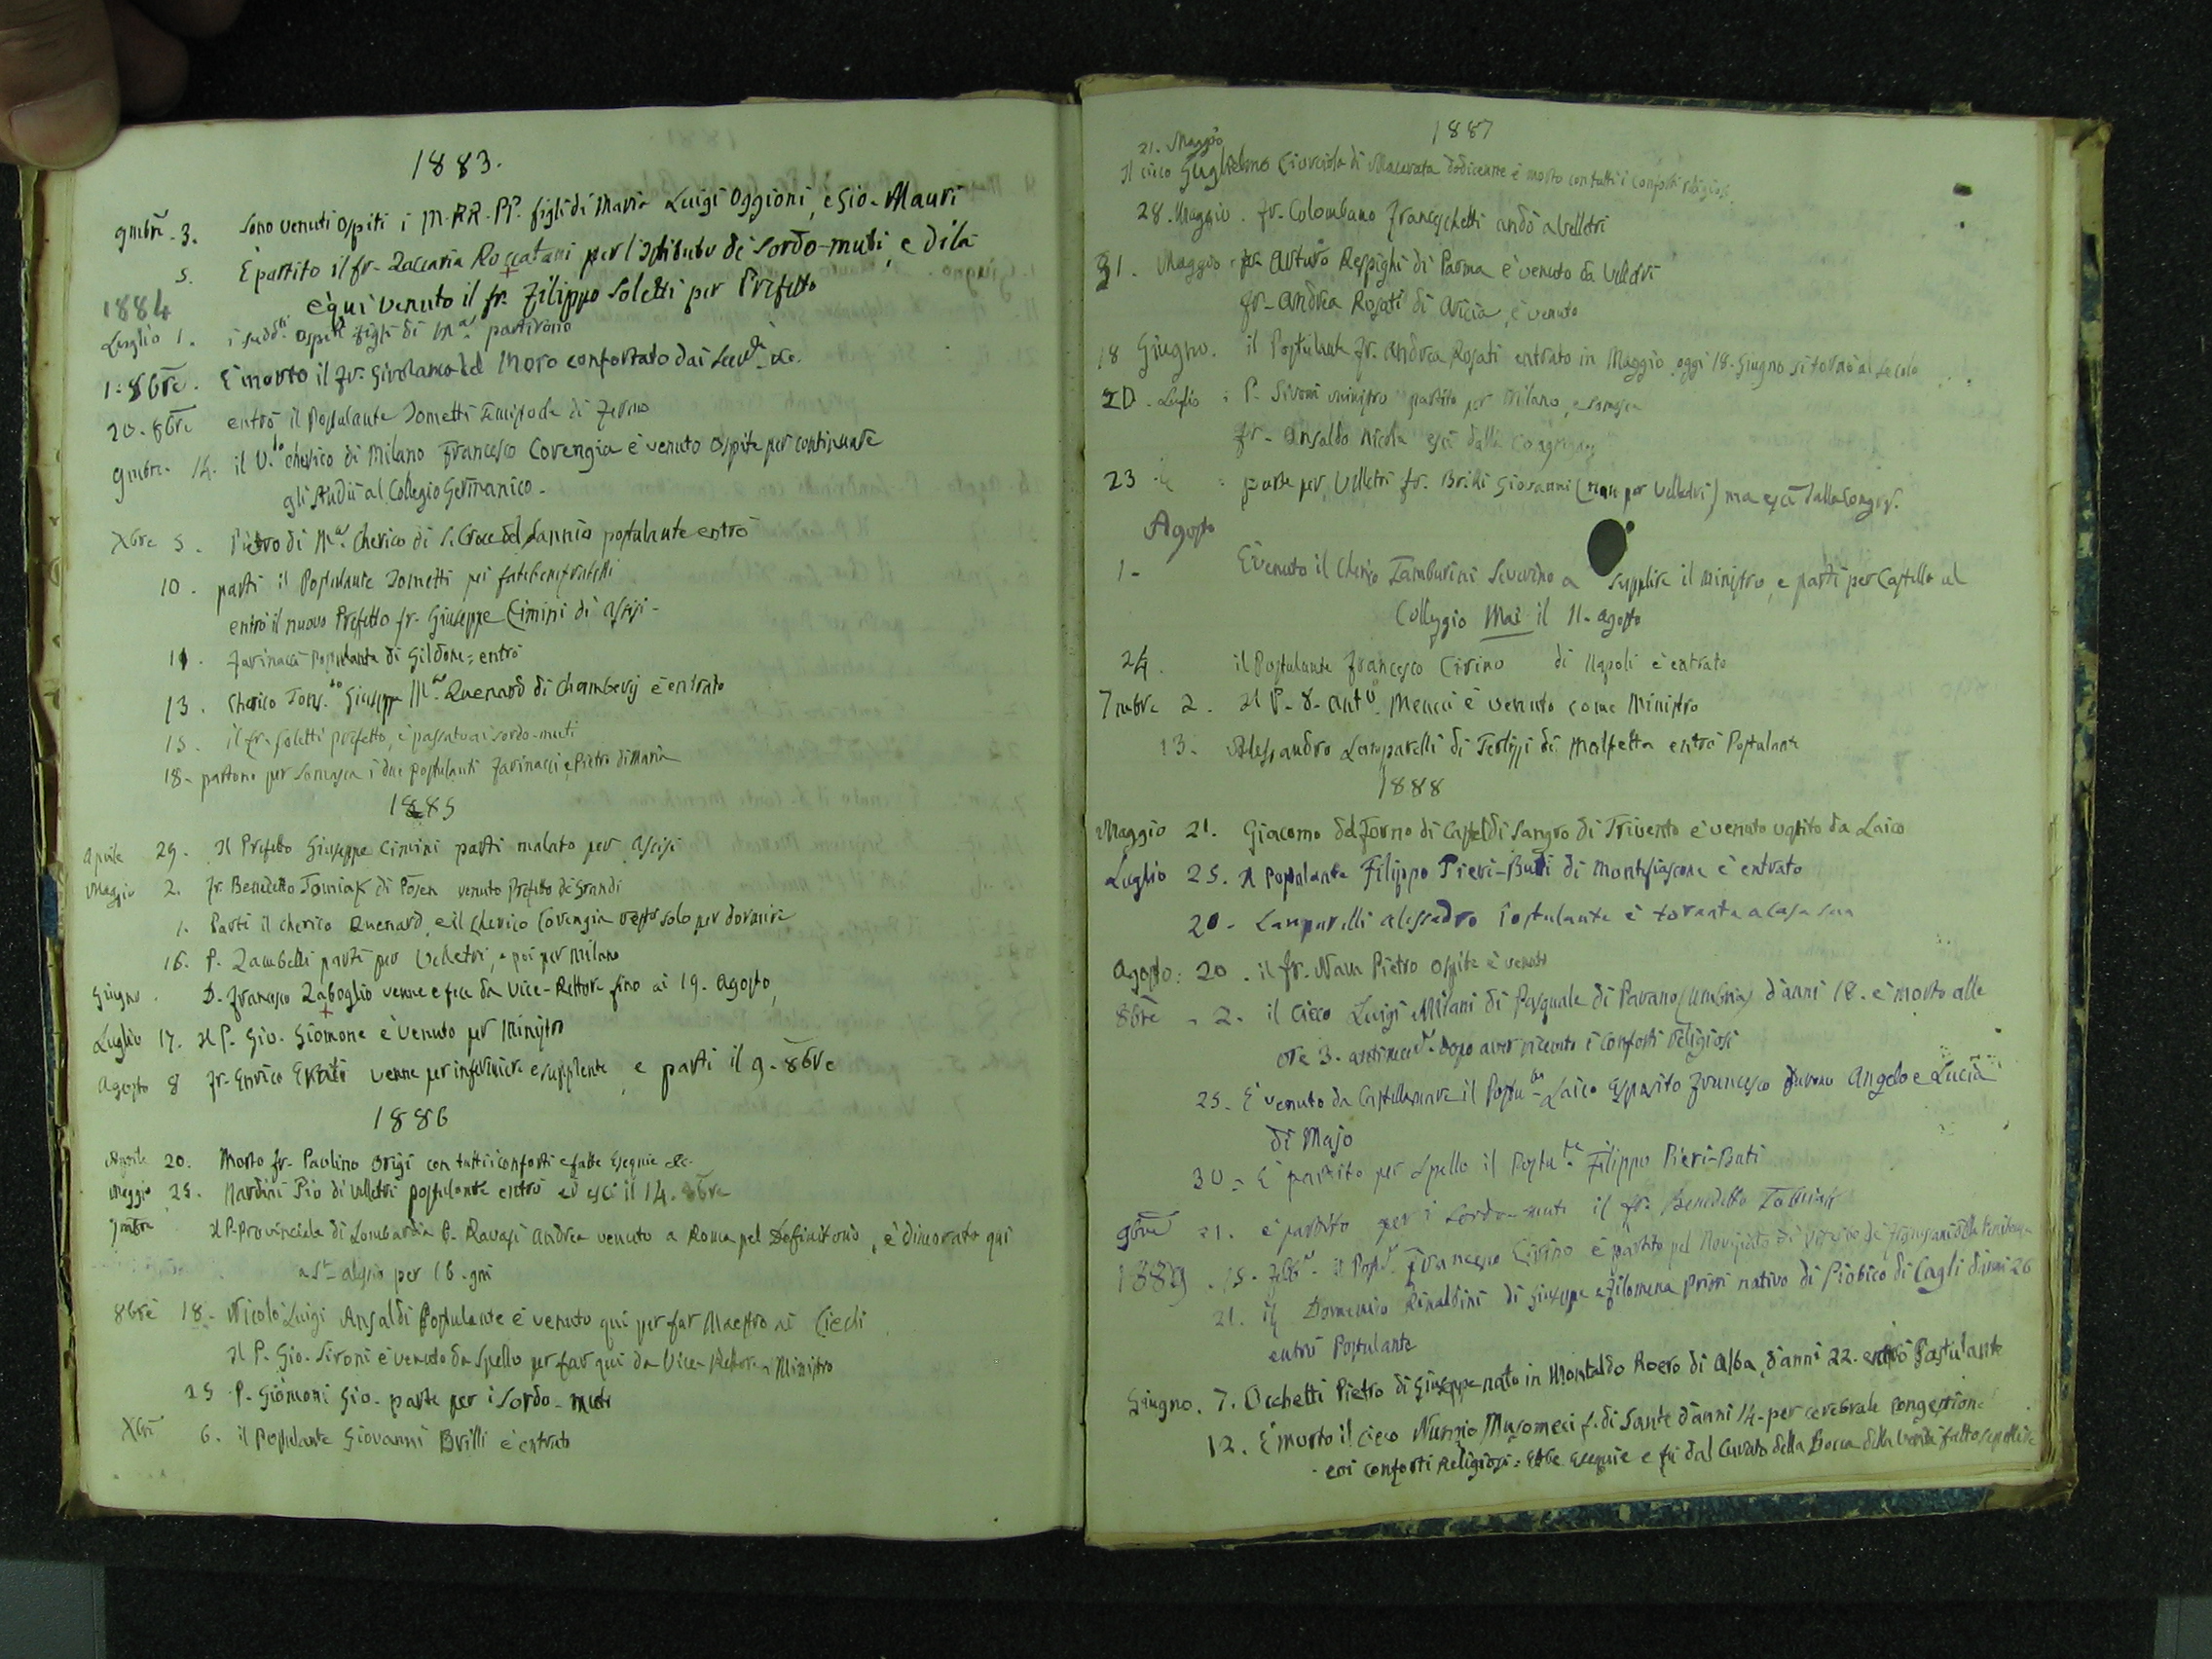 1883.
9mbre. 3. Sono venuti ospiti i M.RR.PP. figli di Maria Luigi Oggioni, e Gio. Mauri
5. È partito il fr. Zaccaria Roccatani per l'Istituto di Sordo-muti, e di là
è qui venuto il fr. Filippo Soletti per Prefetto
1884
Luglio 1. i sudd.ti ospiti figli di M.a partirono
1. 8bre. È morto il fr. Girolamo del Moro confortato dai etc.
20. 8bre entrò il Postulante Tometti di Fermo
9mbre. 14. il chierico di Milano Francesco Covengia è venuto ospite per continuare
gli studii al Collegio Germanico.
Xbre 5. Pietro di M.a Cherico di S. Croce del Sannio postulante entrò
10. partì il Postulante Tometti pei fatebenefratelli
entrò il nuovo Prefetto fr. Giuseppe Cimini di Assisi.
11. Farinacci Postulante di Gildone: entrò
13. Cherico Tons.to Giuseppe M.a Quenard di Chambery è entrato
15. il fr. Soletti prefetto, è passato ai sordo-muti
18. partono per Somasca i due Postulanti Farinacci, e Pietro di Maria
1885
Aprile 29. Il Prefetto Giuseppe Cimini partì malato per Assisi
Maggio 2. fr. Benedetto Tomiak di Posen venuto Prefetto de' Grandi
1. Partì il cherico Quenard, e il Cherico Covengia restò solo per dormire
16. P. Zambelli partì per Velletri, e poi per Milano
Giugno. D. Francesco Zaboglio venne e fece da Vice-Rettore fino ai 19. Agosto,
Luglio 17. Il P. Gio. Giomone è venuto per Ministro
Agosto 8 fr. Enrico venne per infermiere e supplente, e partì il 9. 8bre
1886
Aprile 20. Morto fr. Paolino Origi con tutti i conforti e fatte Esequie etc.
Maggio 25. Nardini Pio di Velletri postulante entrò ed escì il 14. 8bre
7mbre Il P. Provinciale di Lombardia P. Ravasi Andrea venuto a Roma pel Definitorio, è dimorato qui
a S. Alessio per 16. gni
8bre 18. Nicolò Luigi Ansaldi Postulante è venuto qui per far Maestro ai Ciechi
Il P. Gio. Sironi è venuto da Spello per far qui da Vice-Rettore, Ministro
25 P. Giomoni Gio. parte per i Sordo-muti
Xbre 6. il Postulante Giovanni Brilli è entrato
1887
21. Maggio
Il cieco Guglielmo di Macerata dodicenne è morto con tutti i conforti religiosi.
28. Maggio. Fr. Colombano Franceschetti andò a Velletri
31. Maggio. fr. Arturo Respighi di Parma è venuto da Velletri
fr. Andrea Rosati di Aricia, è venuto
18 Giugno. il Postulante Fr. Andrea Rosati entrato in Maggio, oggi 18. Giugno si tornò al secolo
20. Luglio: P. Sironi ministro partito per Milano, e Somasca
fr. Ansaldo Nicola escì dalla Congregaz
23 parte per Velletri fr. Brilli Giovanni ( per Velletri) ma escì dalla Congreg.
Agosto
1. È venuto il Cherico Tamburini Severino a supplire il ministro, e partì per Castello al
Colleggio Mai il 11. Agosto
24. il Postulante Francesco Cirino di Napoli è entrato
7mbre 2. Il P. D. Ant.o Meneci è venuto come Ministro
13. Alessandro Lamparelli di Terlizzi di Molfetta entrò Postulante
1888
Maggio 21. Giacomo del Forno di Castel di Sangro di Trivento è venuto vestito da Laico
Luglio 25. Il Postulante Filippo Pieri-Buti di Montefiascone è entrato
20. Lamparelli Alessadro Postulante è tornato a casa sua
Agosto: 20. il fr. Nava Pietro ospite è venuto
8bre. 2. il Cieco Luigi Milani di Pasquale di Parano (Umbria) d'anni 18. è morto alle
ore 3. antimerid. dopo aver ricevuto i conforti religiosi
25. È venuto da Castellamare il Postu.te Laico Esposito Francesco furono Angelo e Lucia
di Majo
30. È partito per Spello il Postu.te Filippo Pieri-Buti
9bre 21. è partito per i sordo-muti il fr. Benedetto Tomiak
1889. 15. Febb. il Post. Francesco Cirino è partito pel Noviziato
21. Domenico Rinaldini di Giuseppe e Filomena Primi nativo di Piobico di Cagli d'anni 26
entrò Postulante
Giugno. 7. Occhetti Pietro di Giuseppe nato in Montaldo Roero di Alba, d'anni 22. entrò Postulante
12. È morto il cieco Nunzio Musomeci f. di Sante d'anni 14. per cerebrale congestione
coi conforti Religiosi: Ebbe Esequie e fu dal Curato della Bocca della Verità fatto seppellire